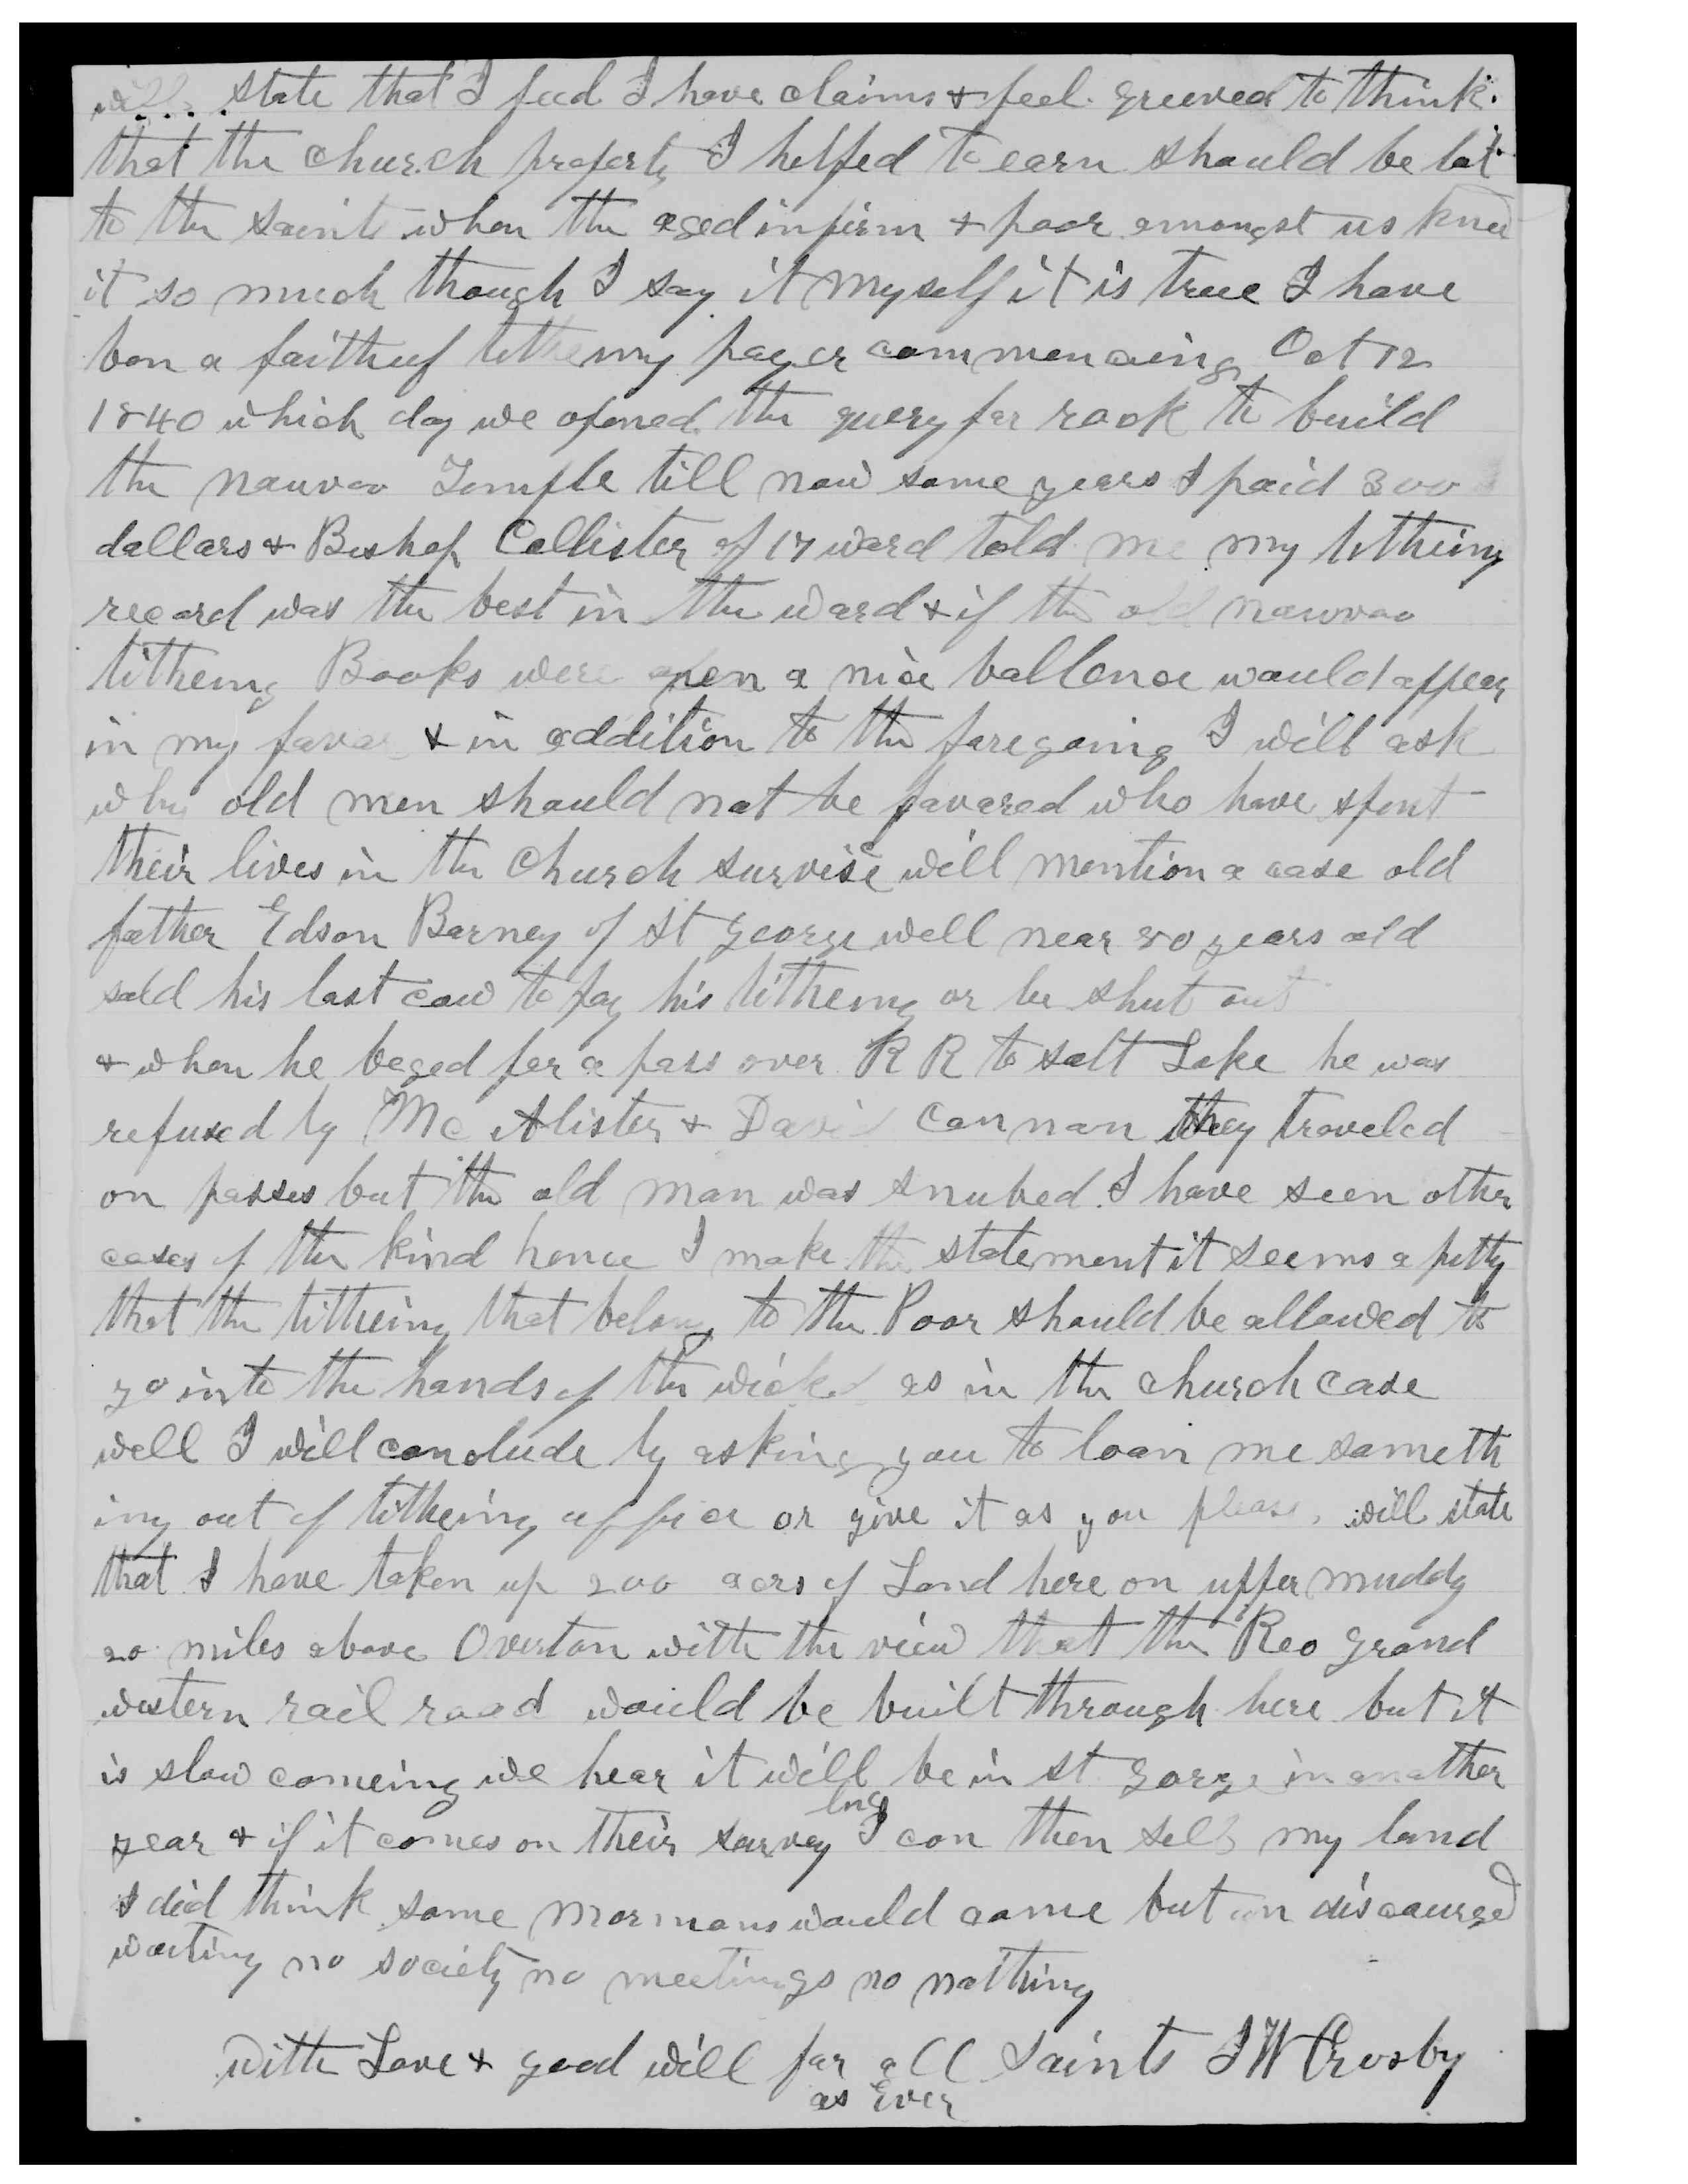 will state that I feed I have claims & feel greeved to think
that the church property I helped to earn should be lost
to the saints when the aged infirm & poor amongst us kneed
it so much though I say it myself it is true I have
ben a faithful titheing payer commenceing Oct 12
1840 which day we opened the query for rock to build
the nauvoo Temple till now some years I paid 300
dallars & Bishop Callister of 17 ward told me my titheing
record was the best in the ward & if the old nauvoo
titheing Books were open a nice ballence would appear
in my favor & in addition to the foregoing I will ask
why old men should not be favored who have spent
their lives in the church survise will mention a case old
father Edson Barney of St George well near 80 years old
sold his last cow to pay his titheing or be shut out
& when he beged for a pass over R R to salt Lake he was
refused by Mc Alister & David Cannan they traveled
on passes but the old man was snubed I have seen other
cases of the kind hence I make the statement it seems a pitty
that the titheing that belong to the Poor should be allowed to
go into the hands of the wicked as in the church case
well I will conclude by asking you to loan me someth
ing out of titheing office or give it as you please. will state
that I have taken up 200 acrs of Land here on upper muddy
20 miles above Overton with the view that the Reo Grand
western rail road would be built through here but it
is slow comeing we hear it will be in st gorge in another
year & if it comes on their survey line I can then sell my land
I did think some mormons would come but am discouraged
waiting no society no meetings no nothing
With Love & good will for all Saints J W Crosby
as Ever